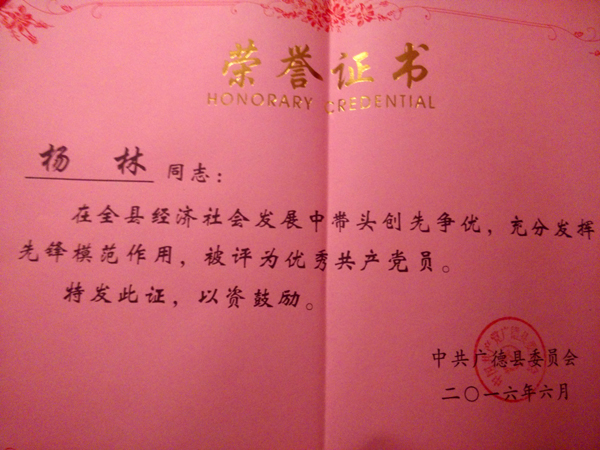 荣誉证书
HONORARY CREDENTIAL
杨 林 同志：
在全县经济社会发展中带头创先争优，充分发挥
先锋模范作用，被评为优秀共产党员。
特发此证，以资鼓励。
中共广德县委员会
二〇一六年六月